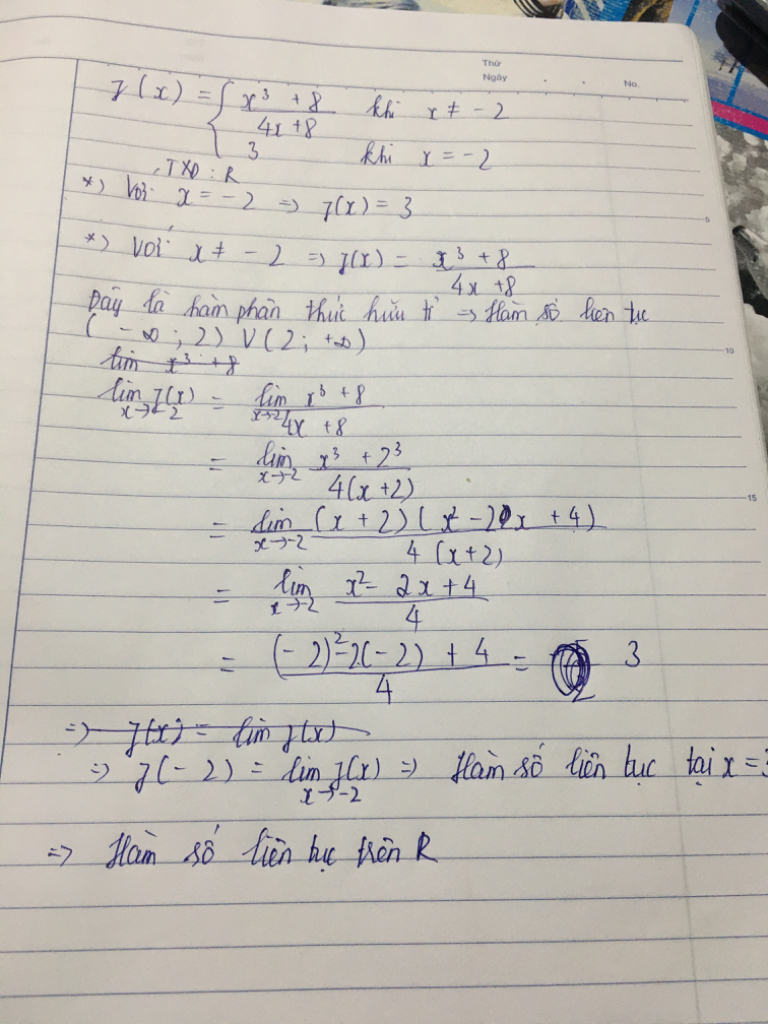 Thứ
Ngày No.
f(x) = { x³ + 8 / 4x + 8 khi x ≠ -2
3 khi x = -2
TXD : R
*) Với x = -2 => f(x) = 3
5
*) Với x ≠ -2 => f(x) = x³ + 8 / 4x + 8
Đây là hàm phân thức hữu tỉ => Hàm số liên tục
(-∞ ; 2) V (2 ; +∞)
10
lim x³ + 8
lim x→-2 f(x) = lim x→-2 x³ + 8 / 4x + 8
= lim x→-2 x³ + 2³ / 4(x+2)
15
= lim x→-2 (x + 2)(x² - 2x + 4) / 4(x+2)
= lim x→-2 x² - 2x + 4 / 4
= (-2)² - 2(-2) + 4 / 4 = 3
=> f(x) = lim f(x)
=> f(-2) = lim x→-2 f(x) => Hàm số liên tục tại x = 3
=> Hàm số liên tục trên R